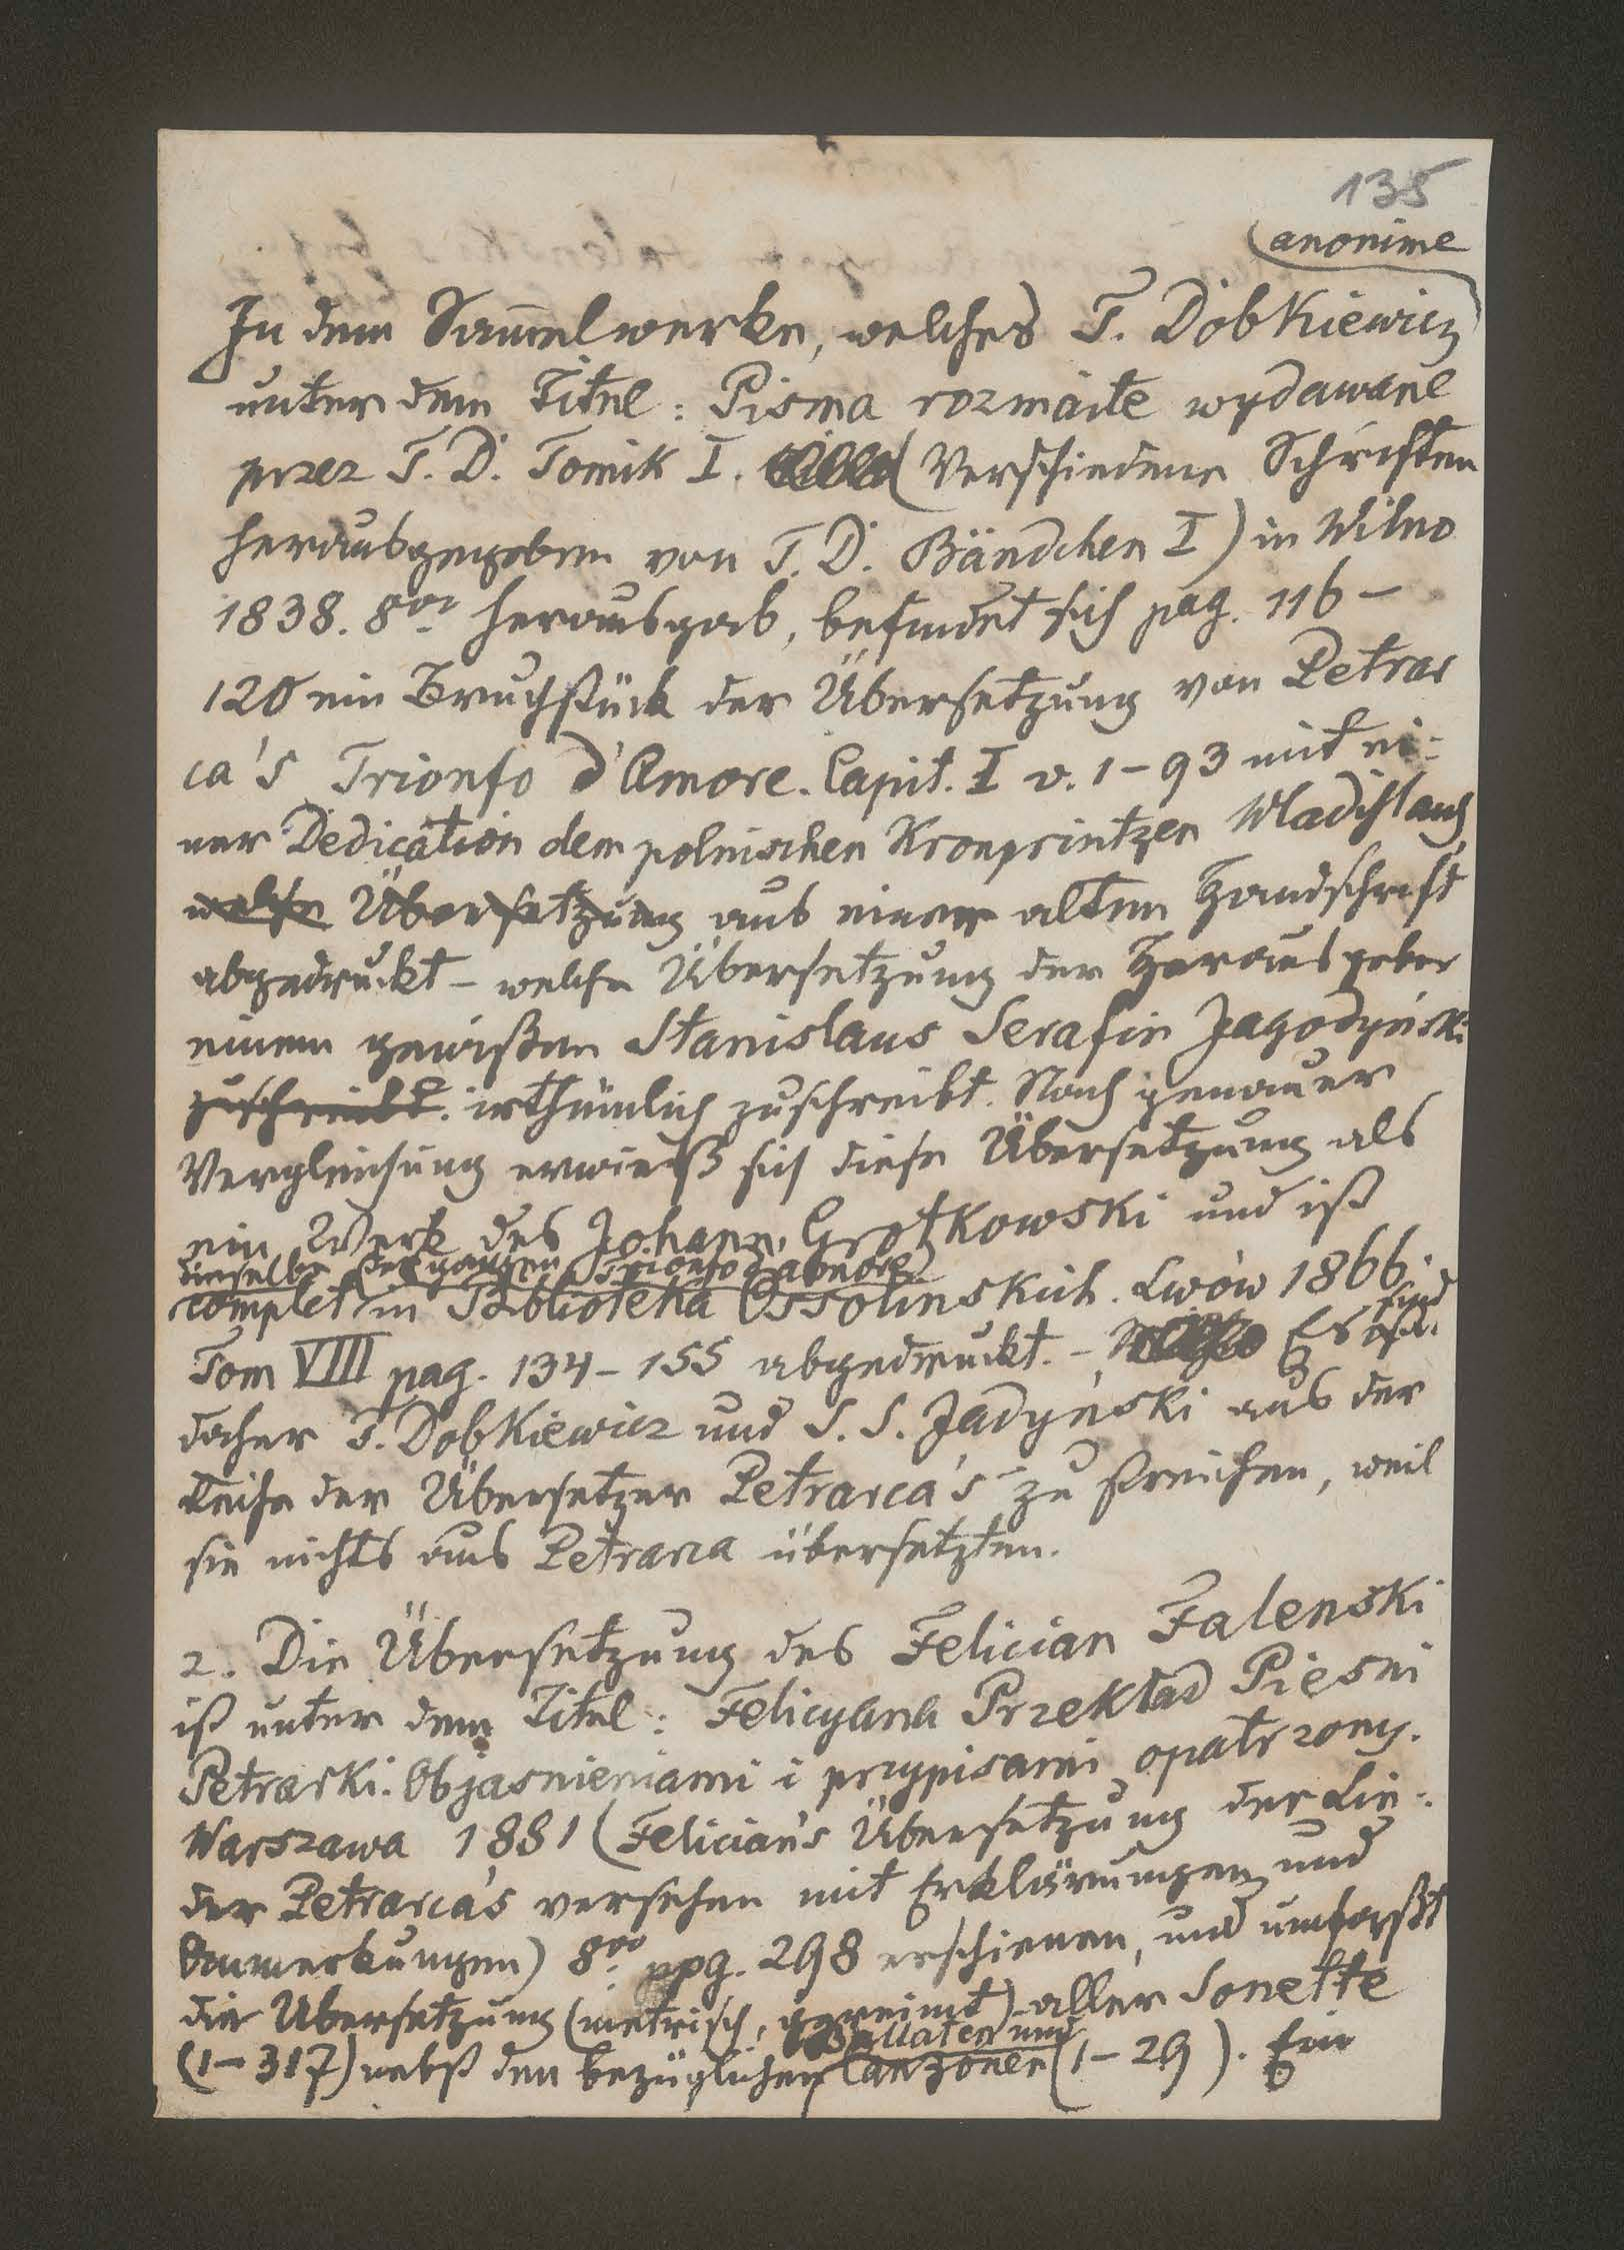 135
anonime
In dem Sam̄elwerke, welches T. Dobkiewicz
unter dem Titel: Pisma rozmaite wydawane
przez T. D. Tomik I. (Verschiedene Schriften
herausgegeben von T. D. Bändchen I) in Wilno
1838. 8vo herausgab, befindet sich pag. 116-
120 ein Bruchstück der Übersetzung von Petrar
ca's Trionfo d'Amore. Capit. I v. 1-93 mit ei=
ner Dedication dem polnischen Kronprintzen Wladislaus
welche Übersetzung aus einer alten Handschrift
abgedruckt - welche Übersetzung der Herausgeber
einem gewißen Stanislaus Serafin Jagodyński
zuschreibt. irthümlich zuschreibt. Nach genauer
Vergleichung erwieß sich diese Übersetzung als
ein Werk des Johann Grotkowski und ist
dieselbe des ganzen Trionfo d'amore
complet in Biblioteka Ossolinskich. Lwów 1866.
Tom VIII pag. 134-155 abgedruckt. - Es sind
daher T. Dobkiewicz und S. S. Jadyński aus der
Reihe der Übersetzer Petrarca's zu streichen, weil
sie nichts aus Petrarca übersetzten.
2. Die Übersetzung des Felician Falenski
ist unter dem Titel: Felicyana Przekład Pieśni
Petrarki. Objasnieniami i przypisami opatrzony.
Warszawa 1881 (Felician's Übersetzung der Lie=
der Petrarca's versehen mit Erklärungen und
Anmerkungen) 8vo ppg. 298 erschienen, und umfaßt
die Übersetzung (metrisch, gereimt) aller Sonette
Ballaten und
(1-317) nebst den bezüglichen Canzonen (1-29). Ein